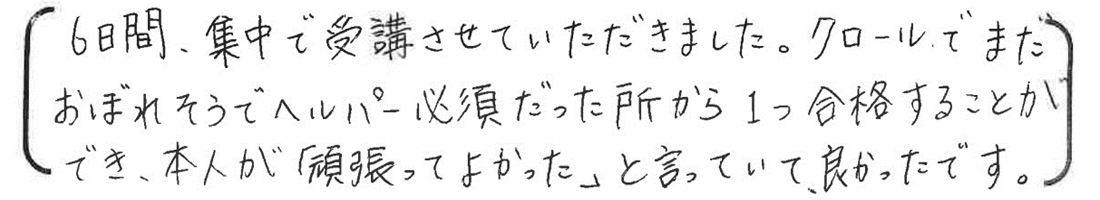 (6日間、集中で受講させていただきました。クロールでまだ
おぼれそうでヘルパー必須だった所から1つ合格することが
でき、本人が「頑張ってよかった」と言っていて、良かったです。)